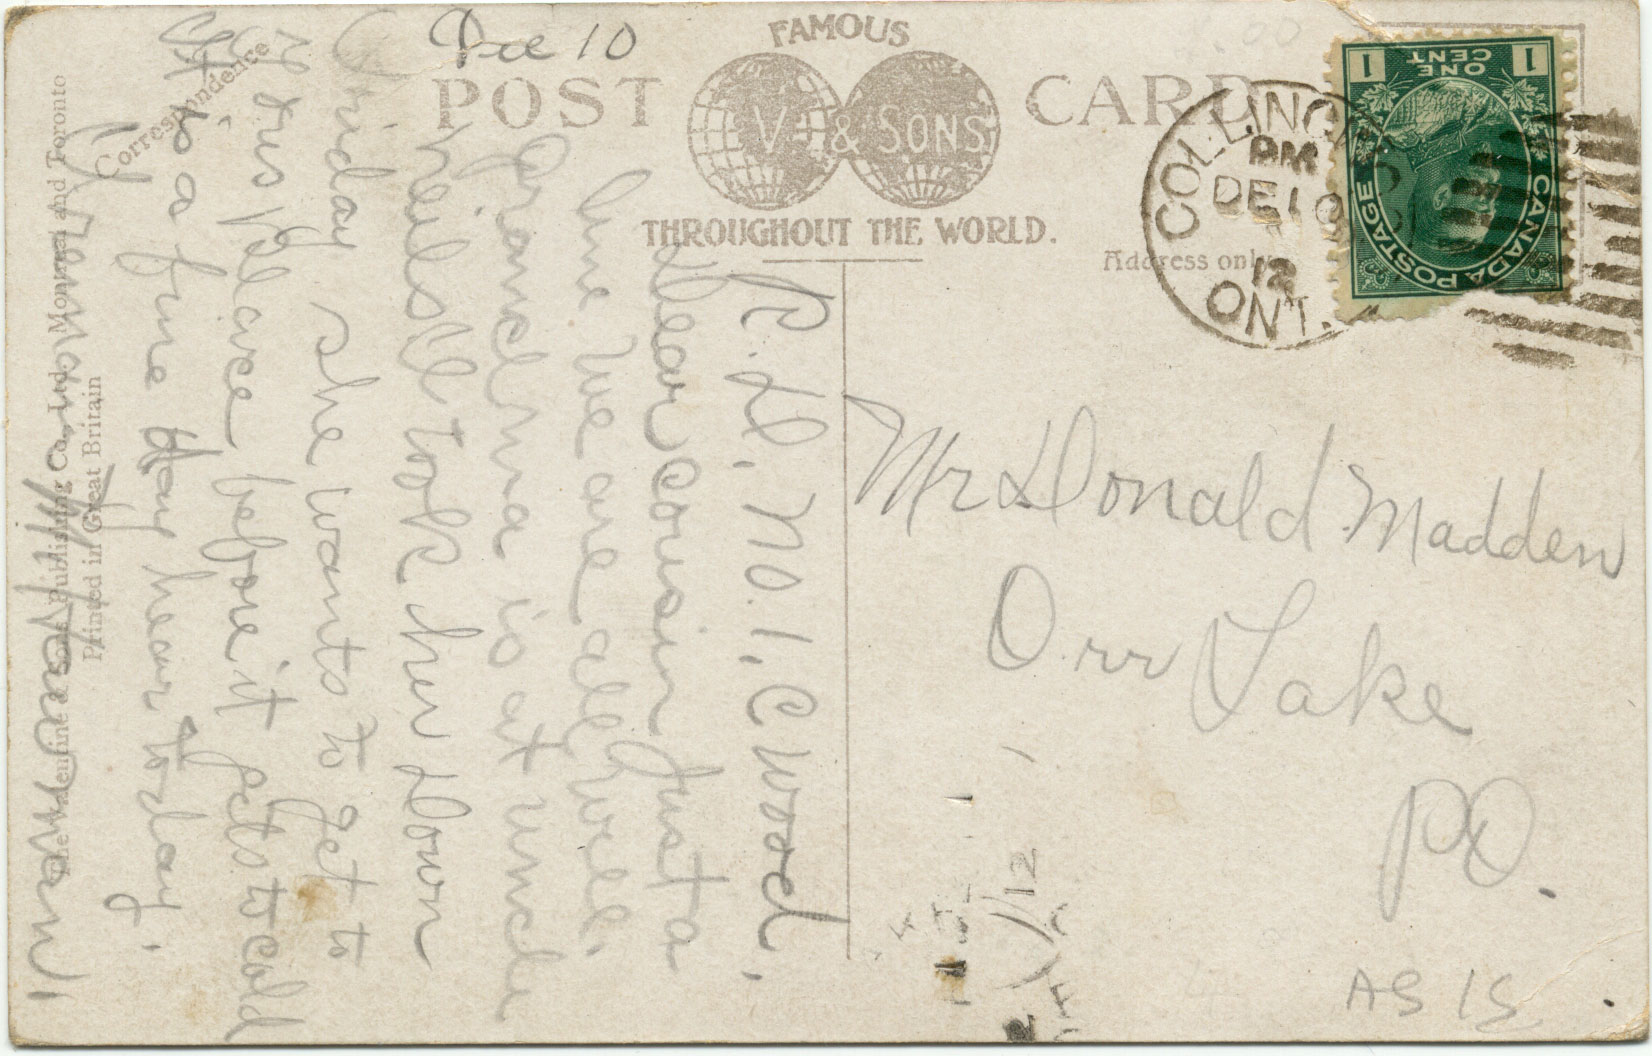 Dec 10
FAMOUS
POST CARD
V & SONS
THROUGHOUT THE WORLD.
Correspondence
Address only
ONE
CENT
1 1
CANADA POSTAGE
COLLING
PM
DE 10
12
ONT.
R. D. No. 1, C wood,
Dear cousin Just a
line we are all well.
Grandma is at uncle
Neils Ill took her down
Friday she wants to get to
your place before it gets to cold
It is a fine day hear to day.
The Valentine & Sons Publishing Co., Ltd. Montreal and Toronto
Printed in Great Britain
Mr Donald Madden
Orr Lake
PO.
1/12
AS IS